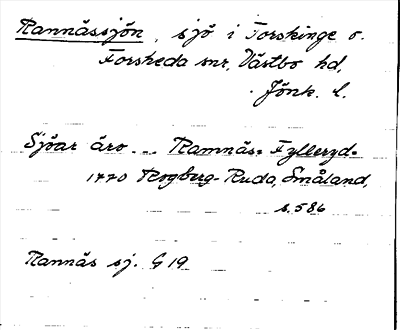 Rannässjön, sjö i Torskinge o.
Forsheda snr, Västbo hd,
Jönk. l.
Sjöar äro ... Ramnäs= Fylleryd=
1770 Rogberg-Ruda, Småland,
s. 586
Rannäs sj. G 19